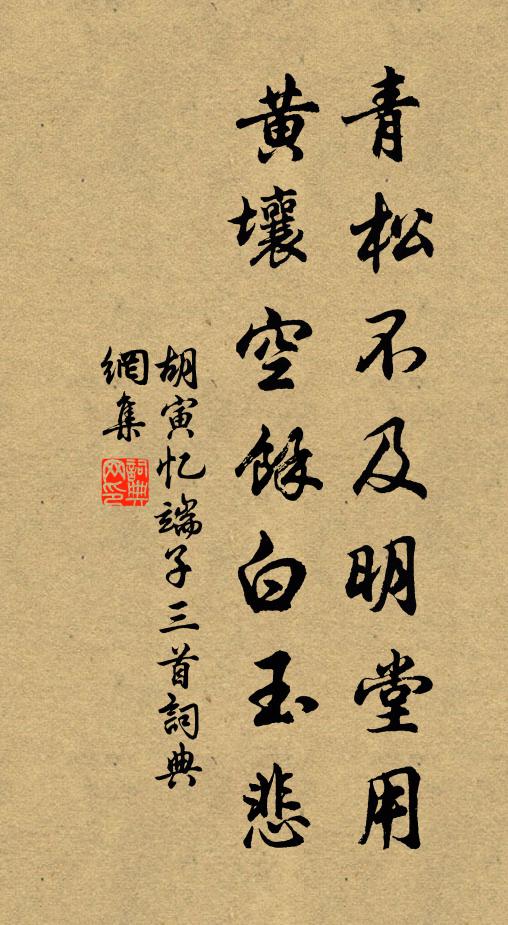 青松不及明堂用
黃壤空餘白玉悲
胡寅忆端子三首詞典
網集
詞典
网印